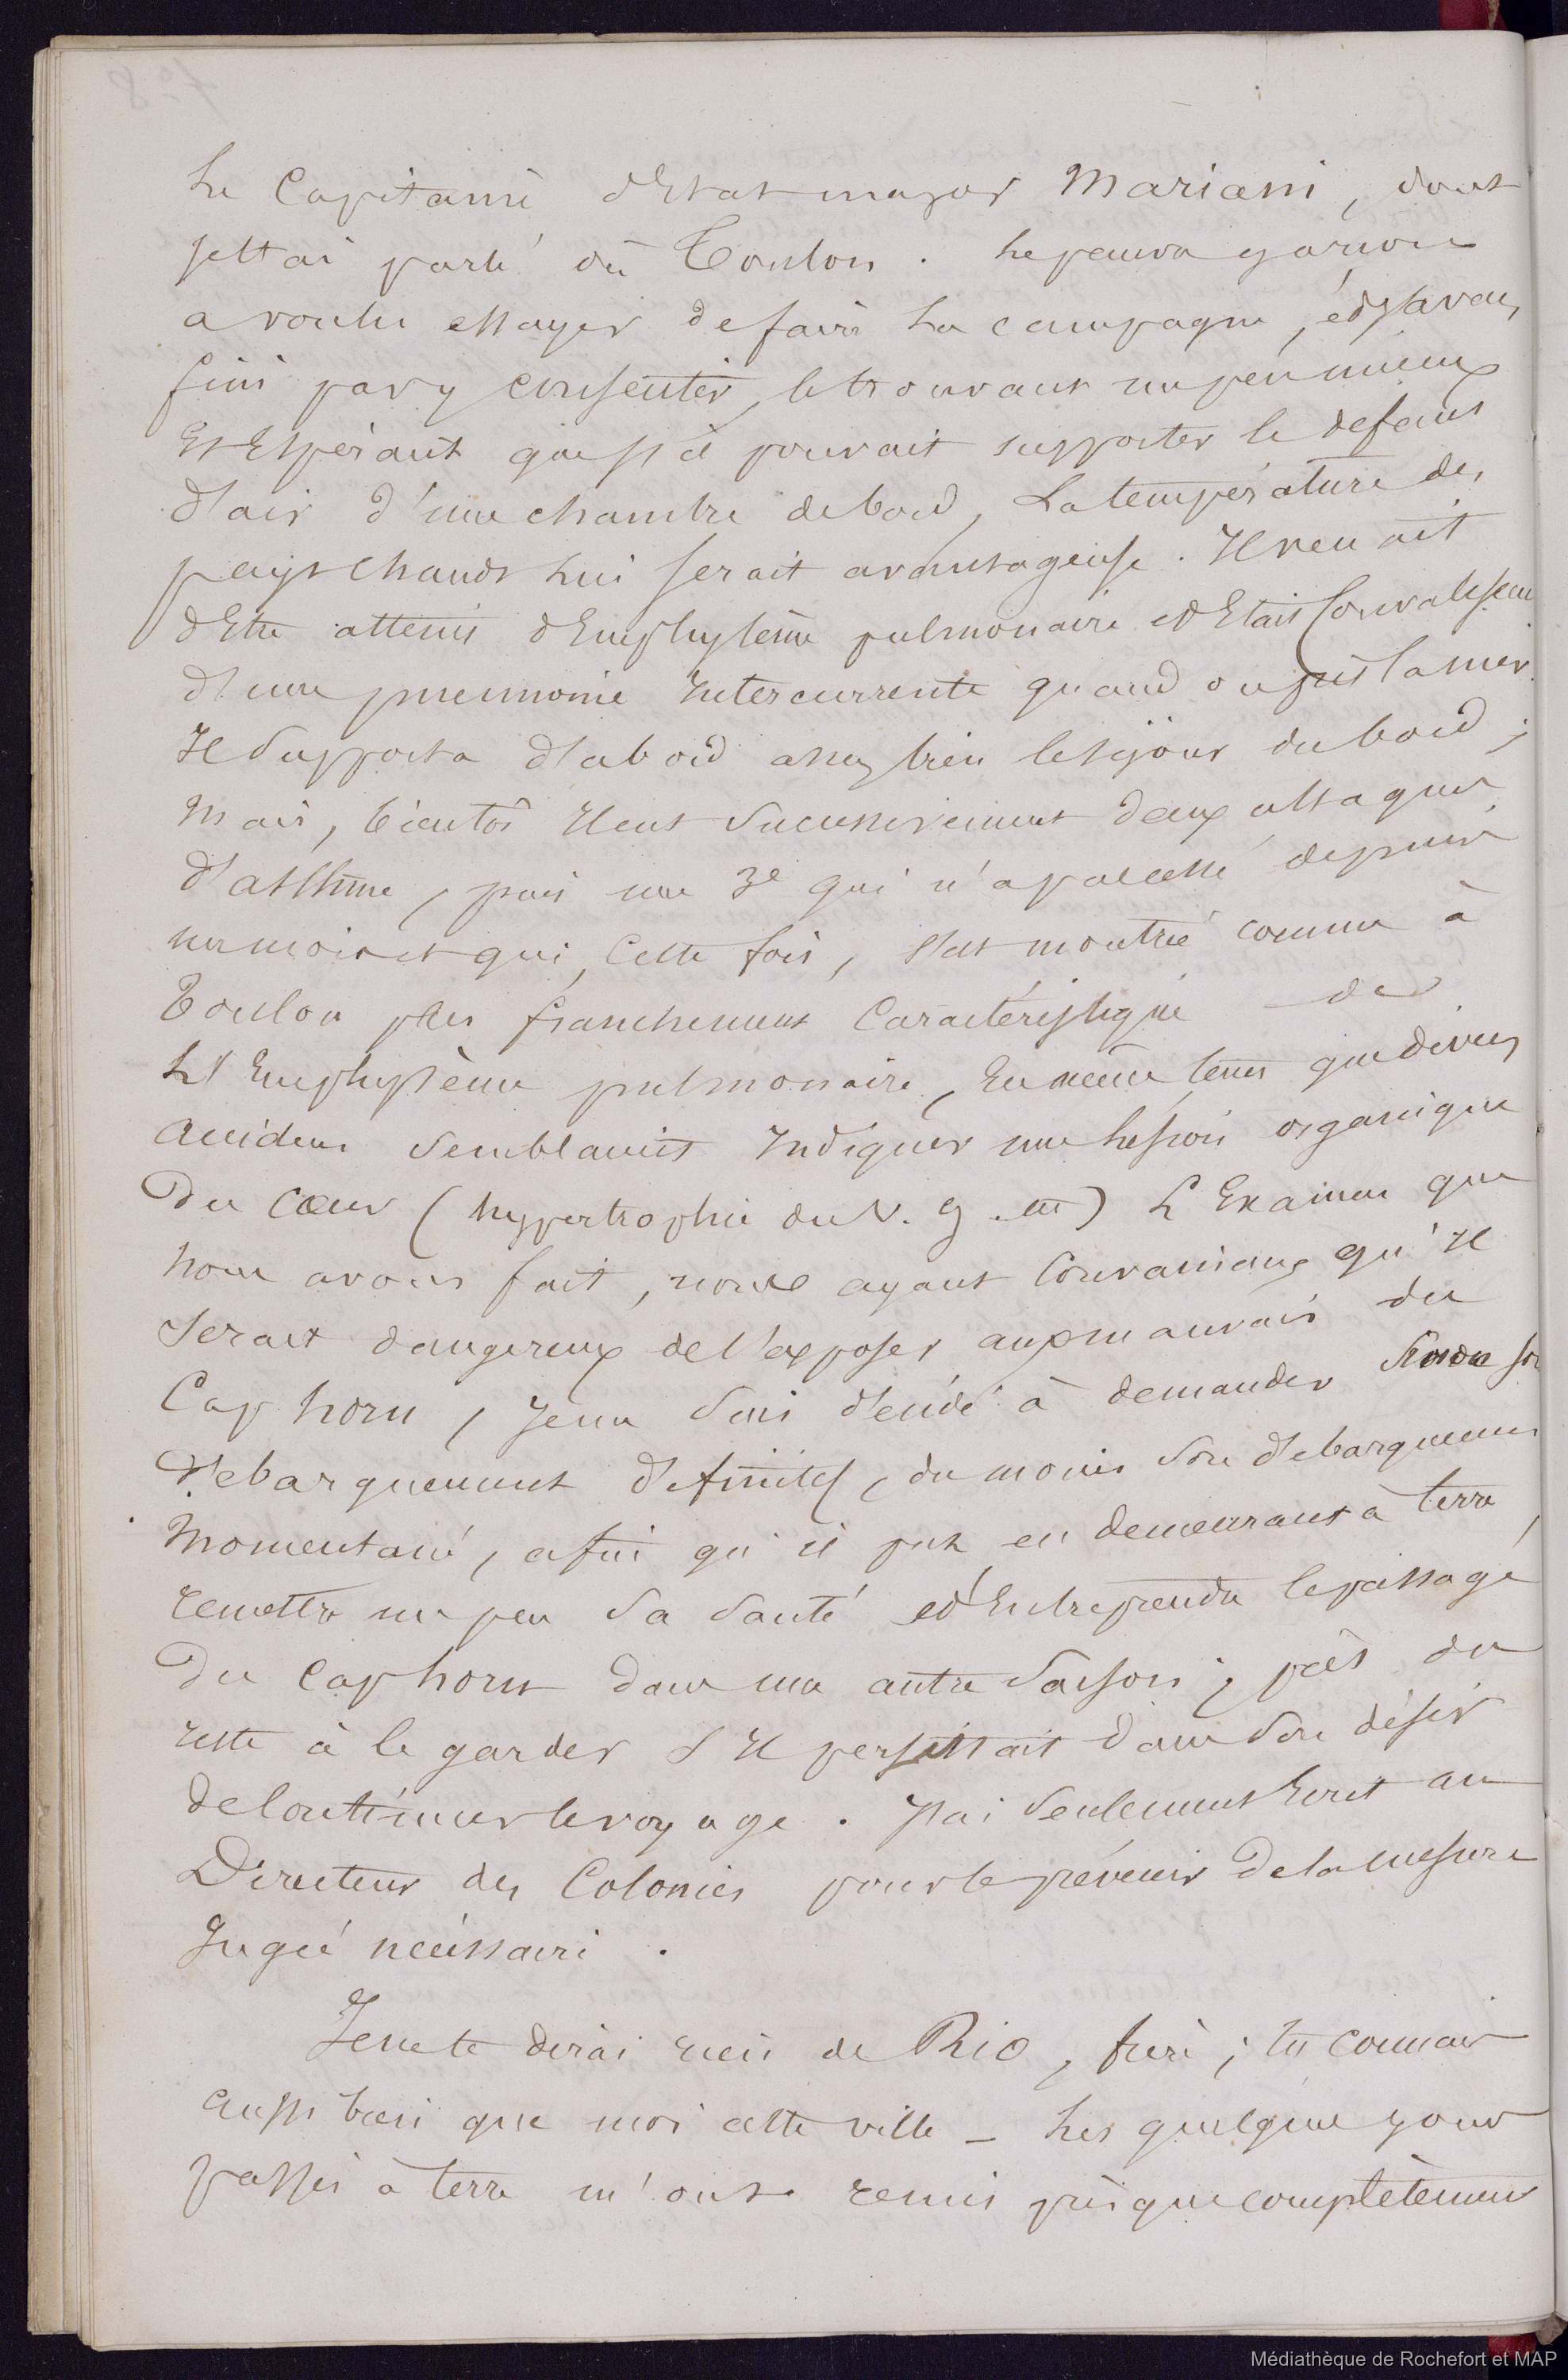 Le Capitaine d'Etat major Mariani, dont
je t'ai parlé de Toulon. Le pauvre garcon
a voulu essayer de faire la campagne, et j'avais
fini par y consentir, le trouvant un peu mieux
Et Espérant que s'il pouvait supporter le defaut
d'air d'une chambre de bord, La température des
pays chauds lui serait avantageuse. Il venait
d'Etre atteint d'Emphysème pulmonaire et Etait Convalescent
d'une pneumonie Intercurrente quand on prit la mer.
Il Supporta d'abord assez bien le séjour du bord;
Mais, bientôt Il eut Successivement deux attaques
d'asthme, puis une 3e qui n'a pas cessé depuis
un mois et qui, Cette fois, s'est montrée comme à
Toulon plus franchement Caractéristique de
L'Emphysème pulmonaire, En même tems que divers
accidens Semblaient Indiquer une lesion organique
Du Cœur (hypertrophie du V. g. ) L'Examen que
nous avons fait, nous ayant Convaincus qu'Il
Serait dangereux de l'exposer aux mauvais du
Cap horn, Je me Suis décidé à demander Sinon son
Débarquement définitif, du moins Son débarquement
Momentané, afin qu'il put en demeurant à terre,
remettre un peu Sa Santé et Entreprendre le passage
Du Cap horn dans une autre Saison; prêt du
reste à le garder S'Il persistait dans Son désir
de Continuer le voyage. J'ai Seulement Ecrit au
Directeur des Colonies pour le prévenir De la mesure
Jugée nécessaire.
Je ne te dirai rien de Rio, frère; tu connais
aussi bien que moi cette ville - Les quelques jours
passés à terre m'ont remis presque complètement
Médiathèque de Rochefort et MAP